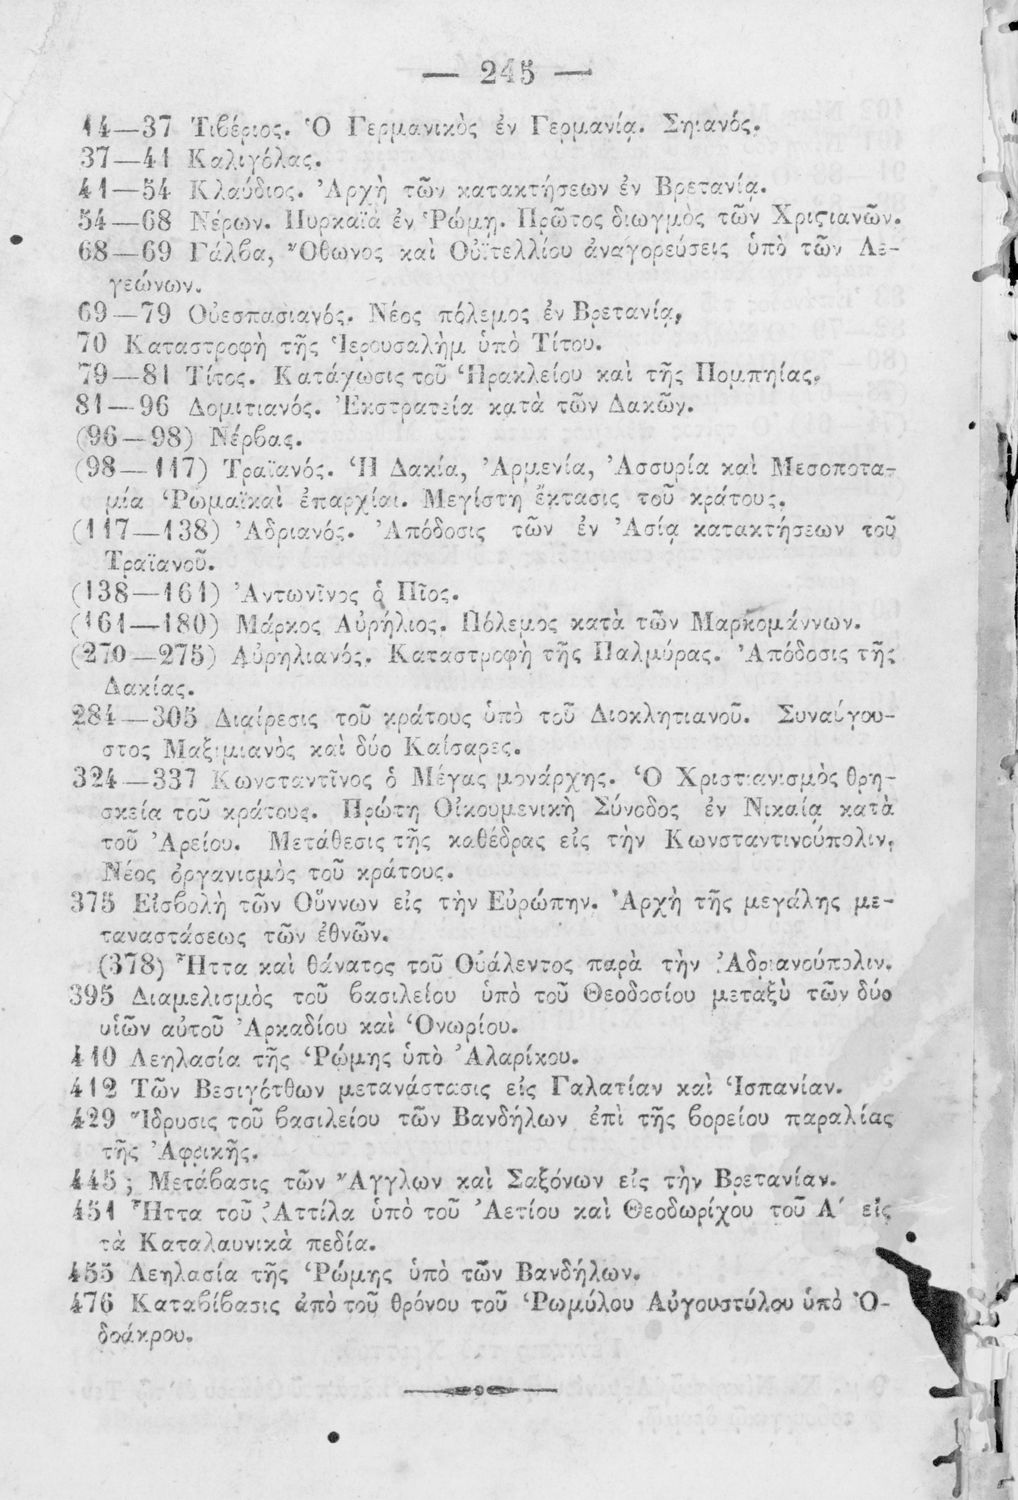 — 245 —
14—37 Τιβέριος. Ὁ Γερμανικὸς ἐν Γερμανίᾳ. Σηιανός.
37—41 Καλιγόλας.
41—54 Κλαύδιος. Ἀρχὴ τῶν κατακτήσεων ἐν Βρετανίᾳ.
54—68 Νέρων. Πυρκαϊὰ ἐν Ῥώμῃ. Πρῶτος διωγμὸς τῶν Χριςιανῶν.
68—69 Γάλβα, Ὄθωνος καὶ Οὐϊτελλίου ἀναγορεύσεις ὑπὸ τῶν Λε-
γεώνων.
69—79 Οὐεσπασιανός. Νέος πόλεμος ἐν Βρετανίᾳ,
70 Καταστροφὴ τῆς Ἱερουσαλὴμ ὑπὸ Τίτου.
79—81 Τίτος. Κατάχωσις τοῦ Ἡρακλείου καὶ τῆς Πομπηίας.
81—96 Δομιτιανός. Ἐκστρατεία κατὰ τῶν Δακῶν.
(96—98) Νέρβας.
(98—117) Τραϊανός. Ἡ Δακία, Ἀρμενία, Ἀσσυρία καὶ Μεσοποτα-
μία Ῥωμαϊκαὶ ἐπαρχίαι. Μεγίστη ἔκτασις τοῦ κράτους.
(117—138) Ἀδριανός. Ἀπόδοσις τῶν ἐν Ἀσίᾳ κατακτήσεων τοῦ
Τραϊανοῦ.
(138—161) Ἀντωνῖνος ὁ Πῖος.
(161—180) Μάρκος Αὐρήλιος. Πόλεμος κατὰ τῶν Μαρκομάννων.
(270—275) Αὐρηλιανός. Καταστροφὴ τῆς Παλμύρας. Ἀπόδοσις τῆς
Δακίας.
284—305 Διαίρεσις τοῦ κράτους ὑπὸ τοῦ Διοκλητιανοῦ. Συναύγου-
στος Μαξιμιανὸς καὶ δύο Καίσαρες.
324—337 Κωνσταντῖνος ὁ Μέγας μονάρχης. Ὁ Χριστιανισμὸς θρη-
σκεία τοῦ κράτους. Πρώτη Οἰκουμενικὴ Σύνοδος ἐν Νικαίᾳ κατὰ
τοῦ Ἀρείου. Μετάθεσις τῆς καθέδρας εἰς τὴν Κωνσταντινούπολιν.
Νέος ὀργανισμὸς τοῦ κράτους.
375 Εἰσβολὴ τῶν Οὕννων εἰς τὴν Εὐρώπην. Ἀρχὴ τῆς μεγάλης με-
ταναστάσεως τῶν ἐθνῶν.
(378) Ἧττα καὶ θάνατος τοῦ Οὐάλεντος παρὰ τὴν Ἀδριανούπολιν.
395 Διαμελισμὸς τοῦ βασιλείου ὑπὸ τοῦ Θεοδοσίου μεταξὺ τῶν δύο
υἱῶν αὐτοῦ Ἀρκαδίου καὶ Ὀνωρίου.
410 Λεηλασία τῆς Ῥώμης ὑπὸ Ἀλαρίκου.
412 Τῶν Βεσιγότθων μετανάστασις εἰς Γαλατίαν καὶ Ἱσπανίαν.
429 Ἵδρυσις τοῦ βασιλείου τῶν Βανδήλων ἐπὶ τῆς βορείου παραλίας
τῆς Ἀφρικῆς.
445; Μετάβασις τῶν Ἄγγλων καὶ Σαξόνων εἰς τὴν Βρετανίαν.
451 Ἧττα τοῦ Ἀττίλα ὑπὸ τοῦ Ἀετίου καὶ Θεοδωρίχου τοῦ Α΄ εἰς
τὰ Καταλαυνικὰ πεδία.
455 Λεηλασία τῆς Ῥώμης ὑπὸ τῶν Βανδήλων.
476 Καταβίβασις ἀπὸ τοῦ θρόνου τοῦ Ῥωμύλου Αὐγουστύλου ὑπὸ Ὀ-
δοάκρου.